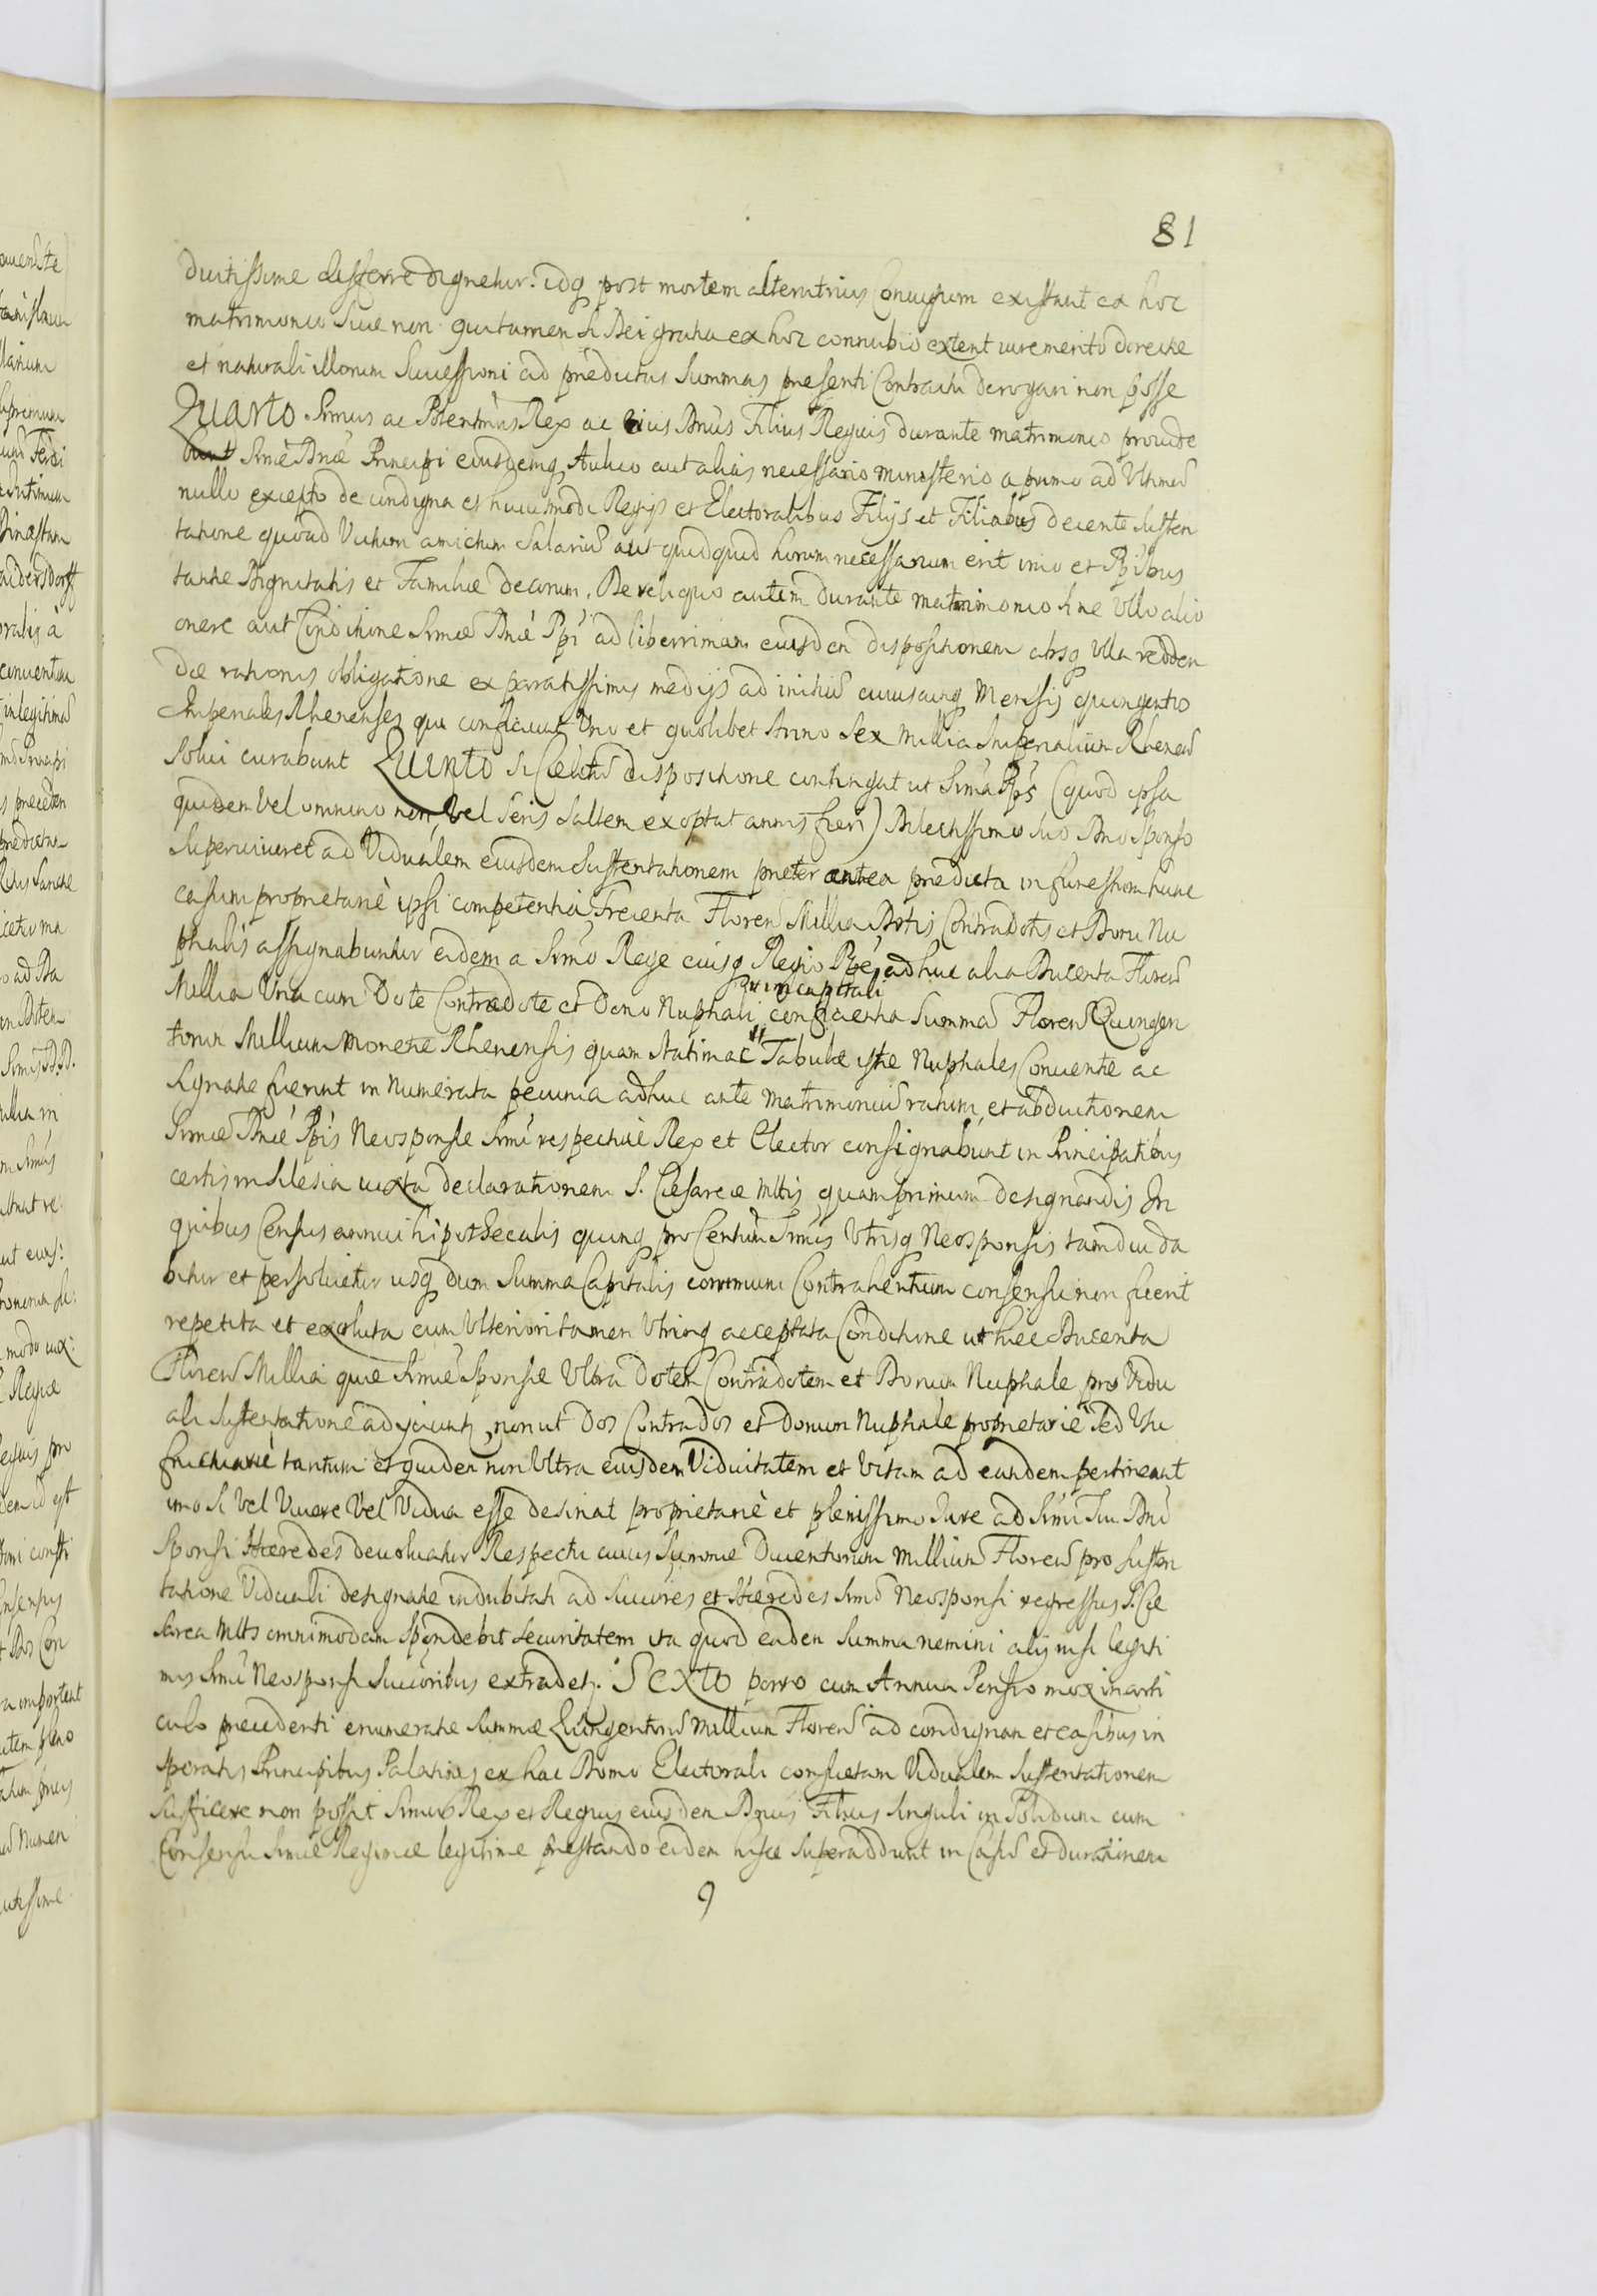 81
ductissime differre dignetur. idq post mortem alterutrius Coniugum existant ex hoc
matrimonio siue non qui tamen si Dei gratia ex hoc connubio extent iure merito directe
et naturali illorum Successioni ad prædictas Summas presenti Contractu derogari non posse
Quarto Srmus ac Potentmus Rex ac eius Dnus Filius Regius durante matrimonio prouide
bunt Srmæ Dnæ Principi eiusdemq Aulico aut alias necessario ministerio a primo ad Vltimu
nullo excepto de condigna et huiusmodi Regijs et Electoralibus Filijs et Filiabus decente susten
tatione quoad Victum amictum Salariu aut quidquid horum necessarium erit imo et Ppibus
tantæ Dignitatis et Familiæ decorum. De reliquo autem durante matrimonio sine Vllo alio
onere aut Conditione Srmæ Dnæ Ppi ad liberrimam eiusdem dispositionem absq Vlla redden
dæ rationis obligatione ex paratissimis medijs ad initiu cuiuscunq Mensis quingentos
Imperiales Rhenenses qui conficiunt Vno et quolibet Anno Sex Millia Imperialium Rhenen
Solui curabunt Quinto si Cælitus dispositione contingat ut Srma Pps (quod ipsa
quidem Vel omnino non, Vel Seris Saltem exoptat annis fieri) Dilectissimo suo Dno Sponso
Superuiueret ad Vidualem eiusdem Sustentationem preter antea prædicta in funestum hunc
casum proprietarie ipsi competentia, Trecenta Floren Millia Dotis Contradotis et Doni Nu
ptialis assignabuntur eidem a Srmo Rege eiusq Regio Ppe, adhuc alia Ducenta Floren
quin capitali
Millia Vna cum Dote Contradote et Dono Nuptiali conficientia Summa Floren Quingen
torum Millium monetæ Rhenensis quam statim ac Tabulæ istæ Nuptiales Conuentæ ac
signatæ fuerint in Numerata pecunia adhuc ante matrimoniu ratum, et abductionem
Srmæ Dnæ Ppis Neosponsæ Srmi respectiuè Rex et Elector consignabunt in Principatibus
certis in Silesia iuxta declarationem S. Cæsareæ Mttis quamprimum designandis In
quibus Census annui hipothecalis quinq pro Centum Srmis Vtrisq Neosponsis tamdiu da
bitur et persoluetur usq dum Summa Capitalis communi Contrahentium consensu non fuerit
repetita et exoluta cum Vlteriori tamen Vtrinq acceptata Conditione ut hæc Ducenta
Floren Millia quæ Srmæ Sponsæ Vltra Dotem Contradotem et Donum Nuptiale pro Vidu
ali Sustentatione adijciunt, non ut Dos Contrados et donum Nuptiale proprietarie sed Usu
fructuariè tantum et quidem non Vltra eiusdem Viduitatem et Vitam ad eandem pertineant
imo si Vel Viuere Vel Vidua esse desinat proprietariè et plenissimo Jure ad Srmi Sui Dni
Sponsi Hæredes deuoluatur Respectu cuius Summæ Ducentorum Millium Floren pro susten
tatione Viduali designatæ indubitati ad Succres et Hæredes Srmi Neosponsi regressus S. Cæ
sarea Mtts omnimodam Spondebit securitatem ita quod eadem Summa nemini alij nisi legiti
mis Srmi Neosponsi Succoribus extradet. Sexto porro cum Annua Pensio mox in arti
culo precedenti enumeratæ summæ Quingentoru Millium Floren ad condignam et casibus in
speratis Principibus Palatinis ex hac Domo Electorali consuetam Vidualem Sustentationem
sufficere non possit Srmus Rex et Regius eiusdem Dnus Filius singuli in Solidum cum
Consensu Srmæ Reginæ legitime prestando eidem hisce Superaddunt in Casu et durationem
9